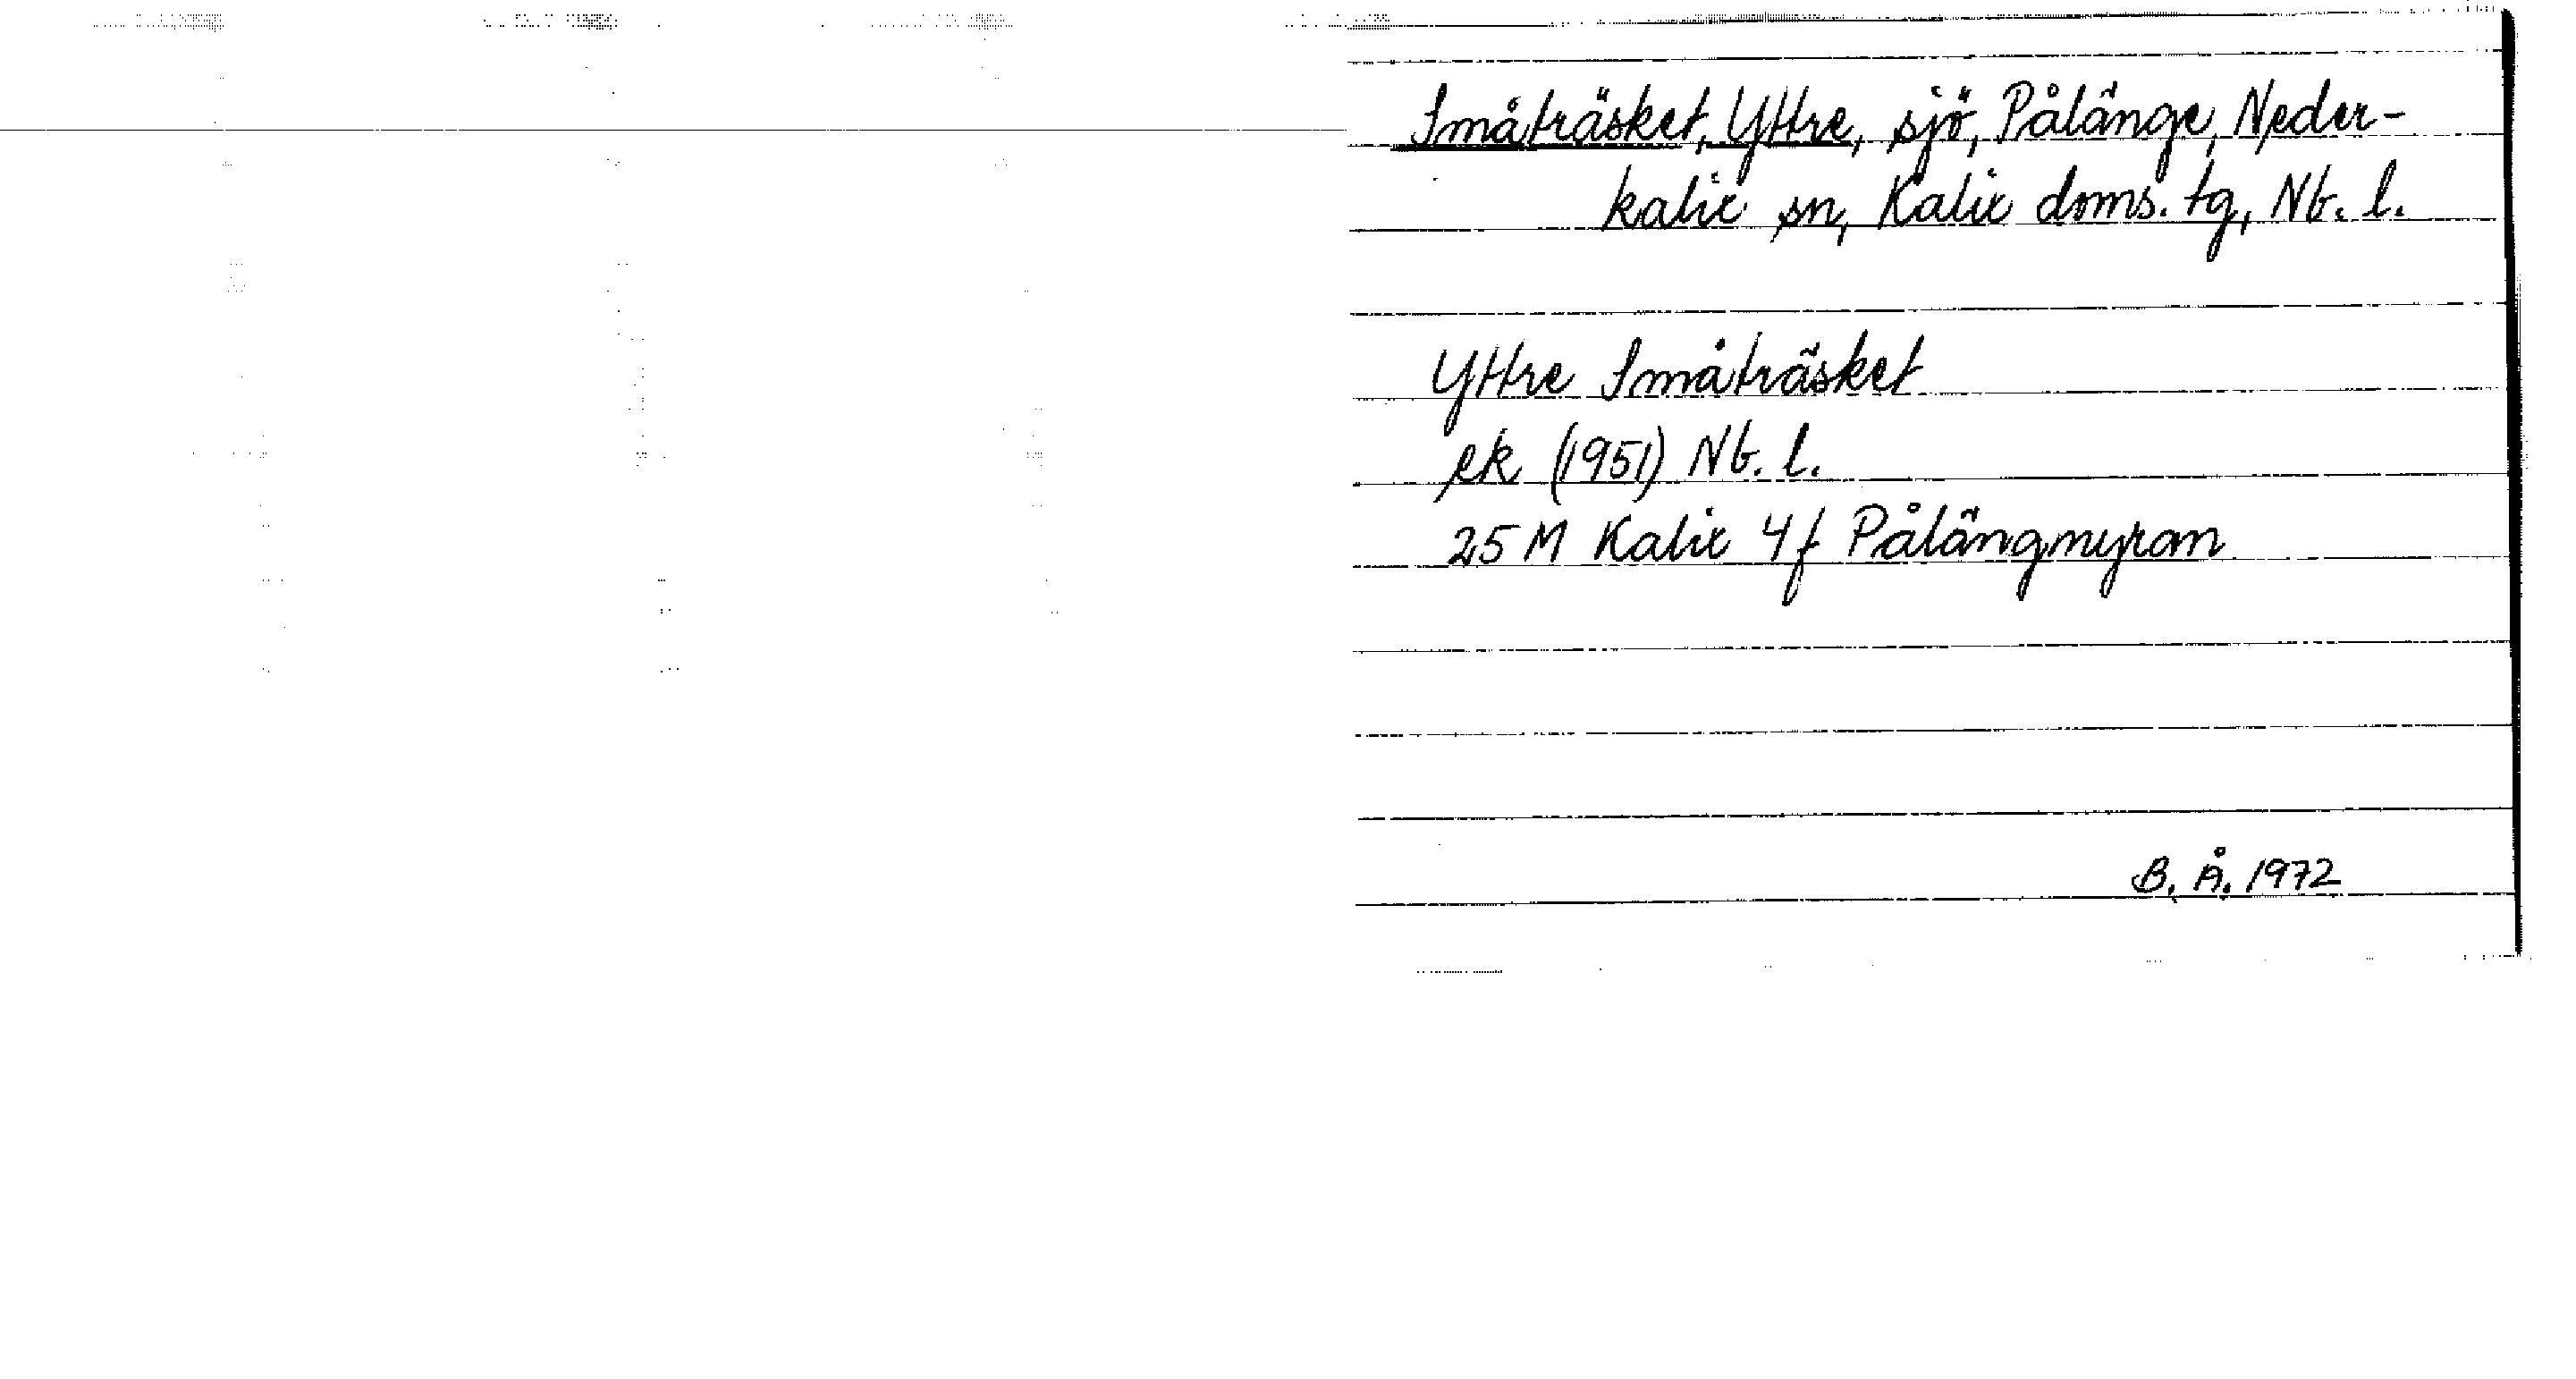 Småträsket, Yttre, sjö, Pålänge, Neder-
kalix sn, Kalix doms. tg, Nb. l.
Yttre Småträsket
ek (1951) Nb. l.
25 M Kalix 4 f Pålängmyran
B. Å. 1972